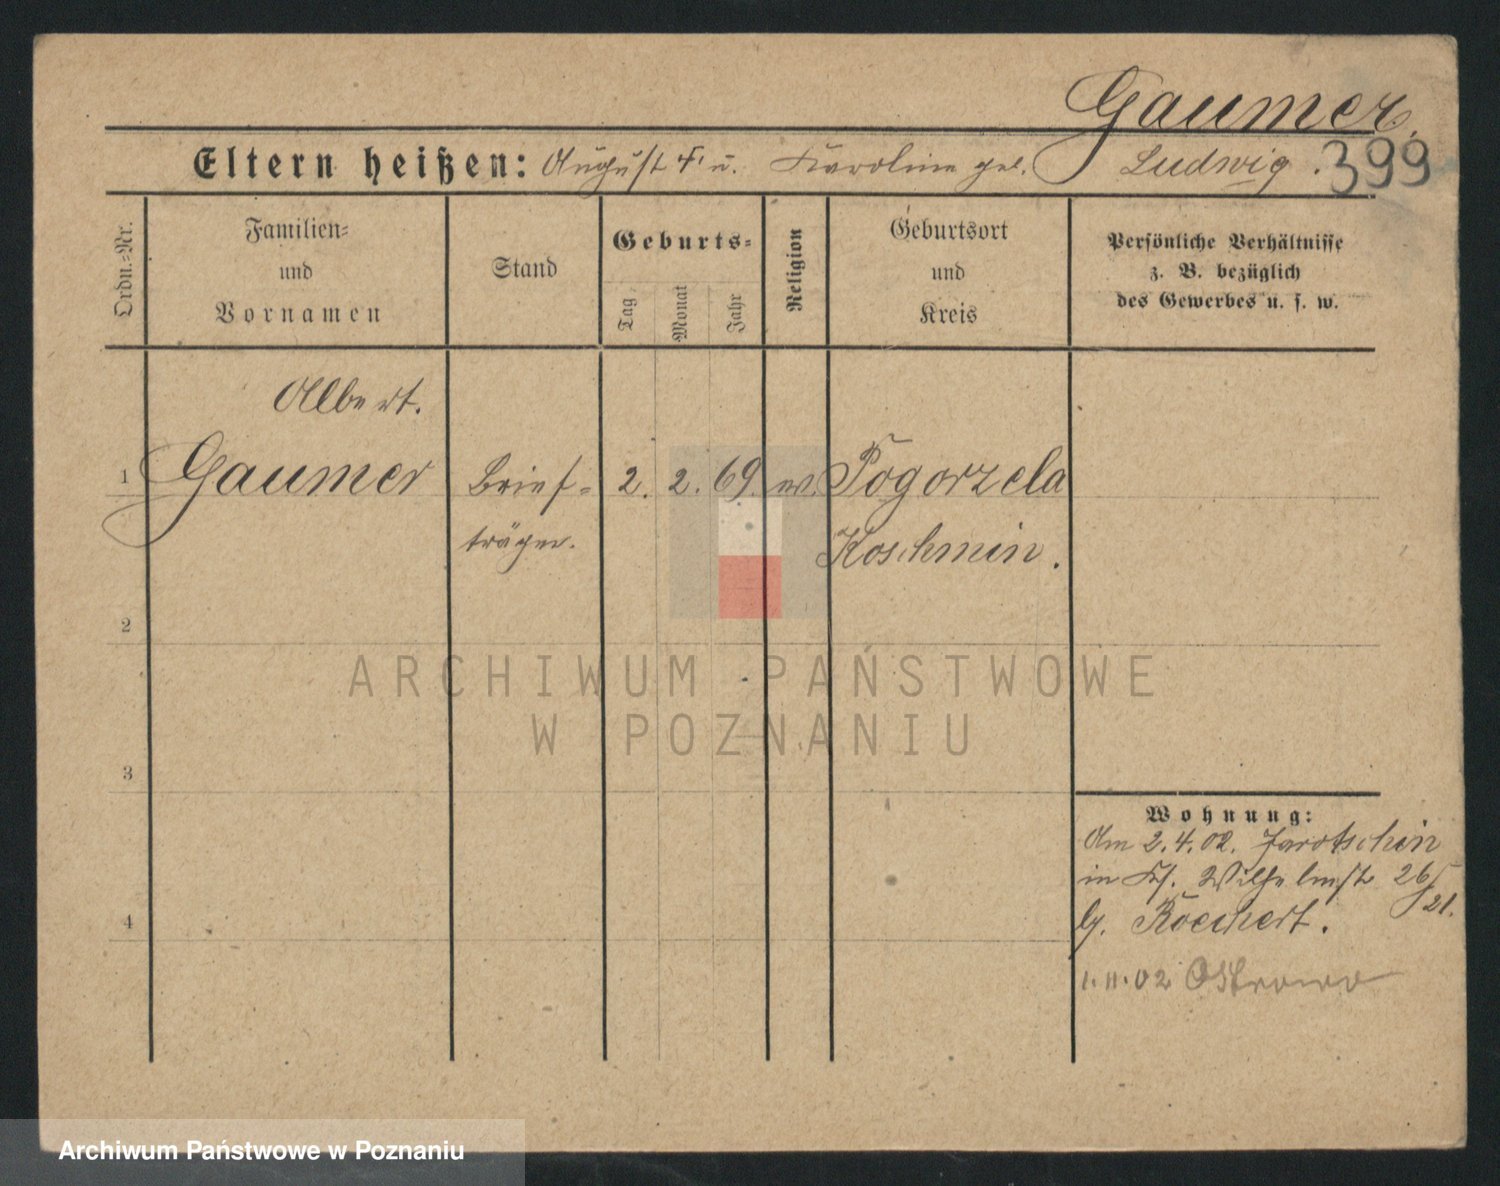 Gaumer.
Eltern heißen: August F. u. Karoline geb. Ludwig. 399
Ordn.-Nr.
Familien- und Vornamen
Stand
Geburts-
Tag
Monat
Jahr
Religion
Geburtsort und Kreis
Persönliche Verhältnisse
z. B. bezüglich
des Gewerbes u. s. w.
Albert.
1 Gaumer Brief- 2. 2. 69. ev. Pogorzela
träger. Koschmin.
2
3
4
Wohnung:
Am 2.4.02. Jarotschin
in Wilhelmstr 26/
21.
1.11.02 Ostrowo
ARCHIWUM PAŃSTWOWE
W POZNANIU
Archiwum Państwowe w Poznaniu